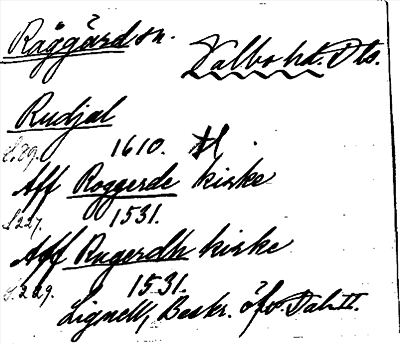 Råggärd sn. Valbo hd. Dls.
Rudjal
S. 89. 1610. H.
Aff Roggerde kirke
S. 227. 1531.
Aff Ragerdh kirke
S. 229. 1531.
Lignell, Beskr. öfv. Dal II.